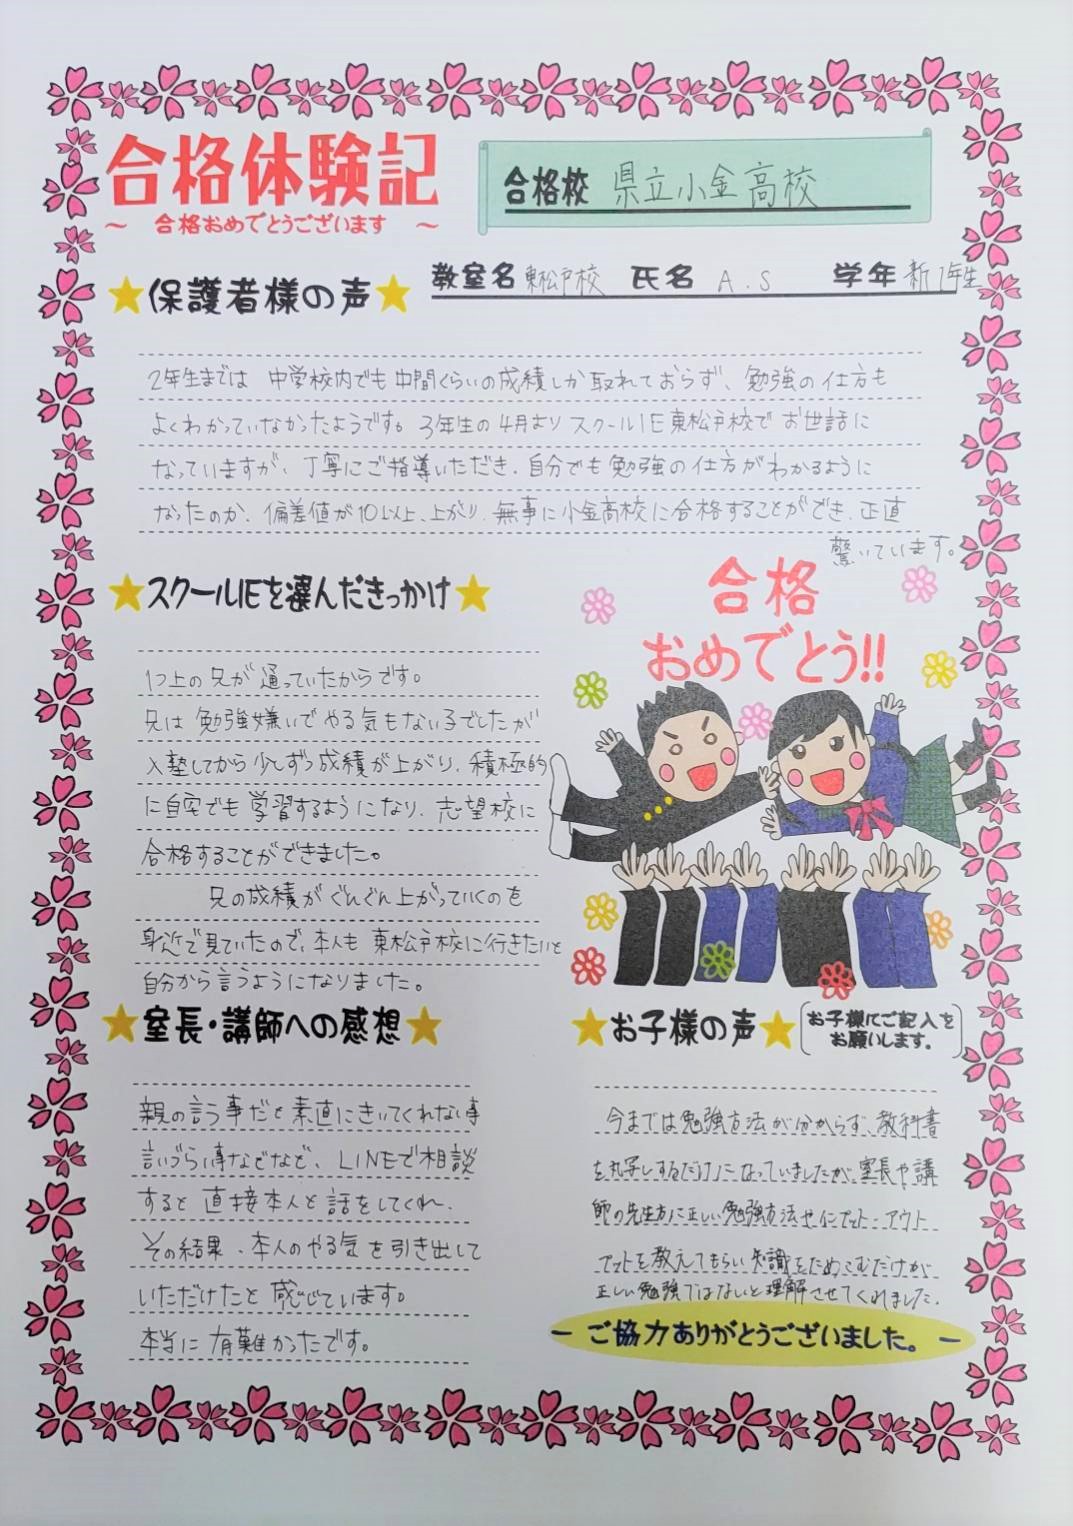 合格体験記
～ 合格おめでとうございます ～
合格校 県立小金高校
教室名 東松戸校 氏名 A.S 学年 新1年生
★保護者様の声★
2年生までは 中学校内でも中間くらいの成績しか取れておらず、勉強の仕方も
よくわかっていなかったようです。3年生の4月より スクールIE東松戸校で お世話に
なっていますが、丁寧にご指導いただき、自分でも勉強の仕方がわかるように
なったのか、偏差値が10以上、上がり、無事に小金高校に合格することができ、正直
驚いています。
★スクールIEを選んだきっかけ★
1つ上の兄が通っていたからです。
兄は勉強嫌いでやる気もない子でしたが
入塾してから少しずつ成績が上がり、積極的
に自宅でも学習するようになり、志望校に
合格することができました。
兄の成績がぐんぐん上がっていくのを
身近で見ていたので、本人も東松戸校に行きたいと
自分から言うようになりました。
合格
おめでとう!!
★室長・講師への感想★
親の言う事だと素直にきいてくれない事
言いづらい事などなど、LINEで相談
すると直接本人と話をしてくれ、
その結果、本人のやる気を引き出して
いただけたと感じています。
本当に有難かったです。
★お子様の声★ (お子様にご記入を
お願いします。)
今までは勉強方法が分からず、教科書
を丸写しするだけになっていましたが、室長や講
師の先生方に正しい勉強方法やインプット・アウト
プットを教えてもらい知識をためこむだけが
正しい勉強ではないと理解させてくれました。
－ ご協力ありがとうございました。 －